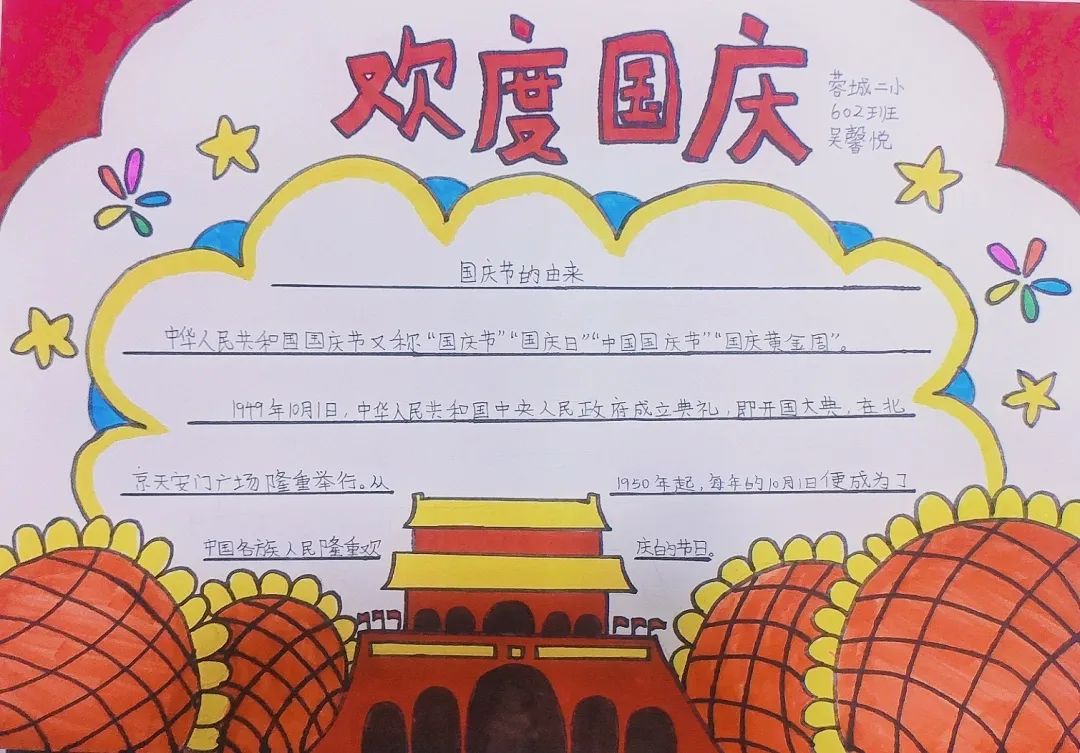 欢度国庆
蓉城二小
602班
吴馨悦
国庆节的由来
中华人民共和国国庆节又称“国庆节”“国庆日”“中国国庆节”“国庆黄金周”。
1949年10月1日，中华人民共和国中央人民政府成立典礼，即开国大典，在北
京天安门广场隆重举行。从 1950年起，每年的10月1日便成为了
中国各族人民隆重欢 庆的节日。